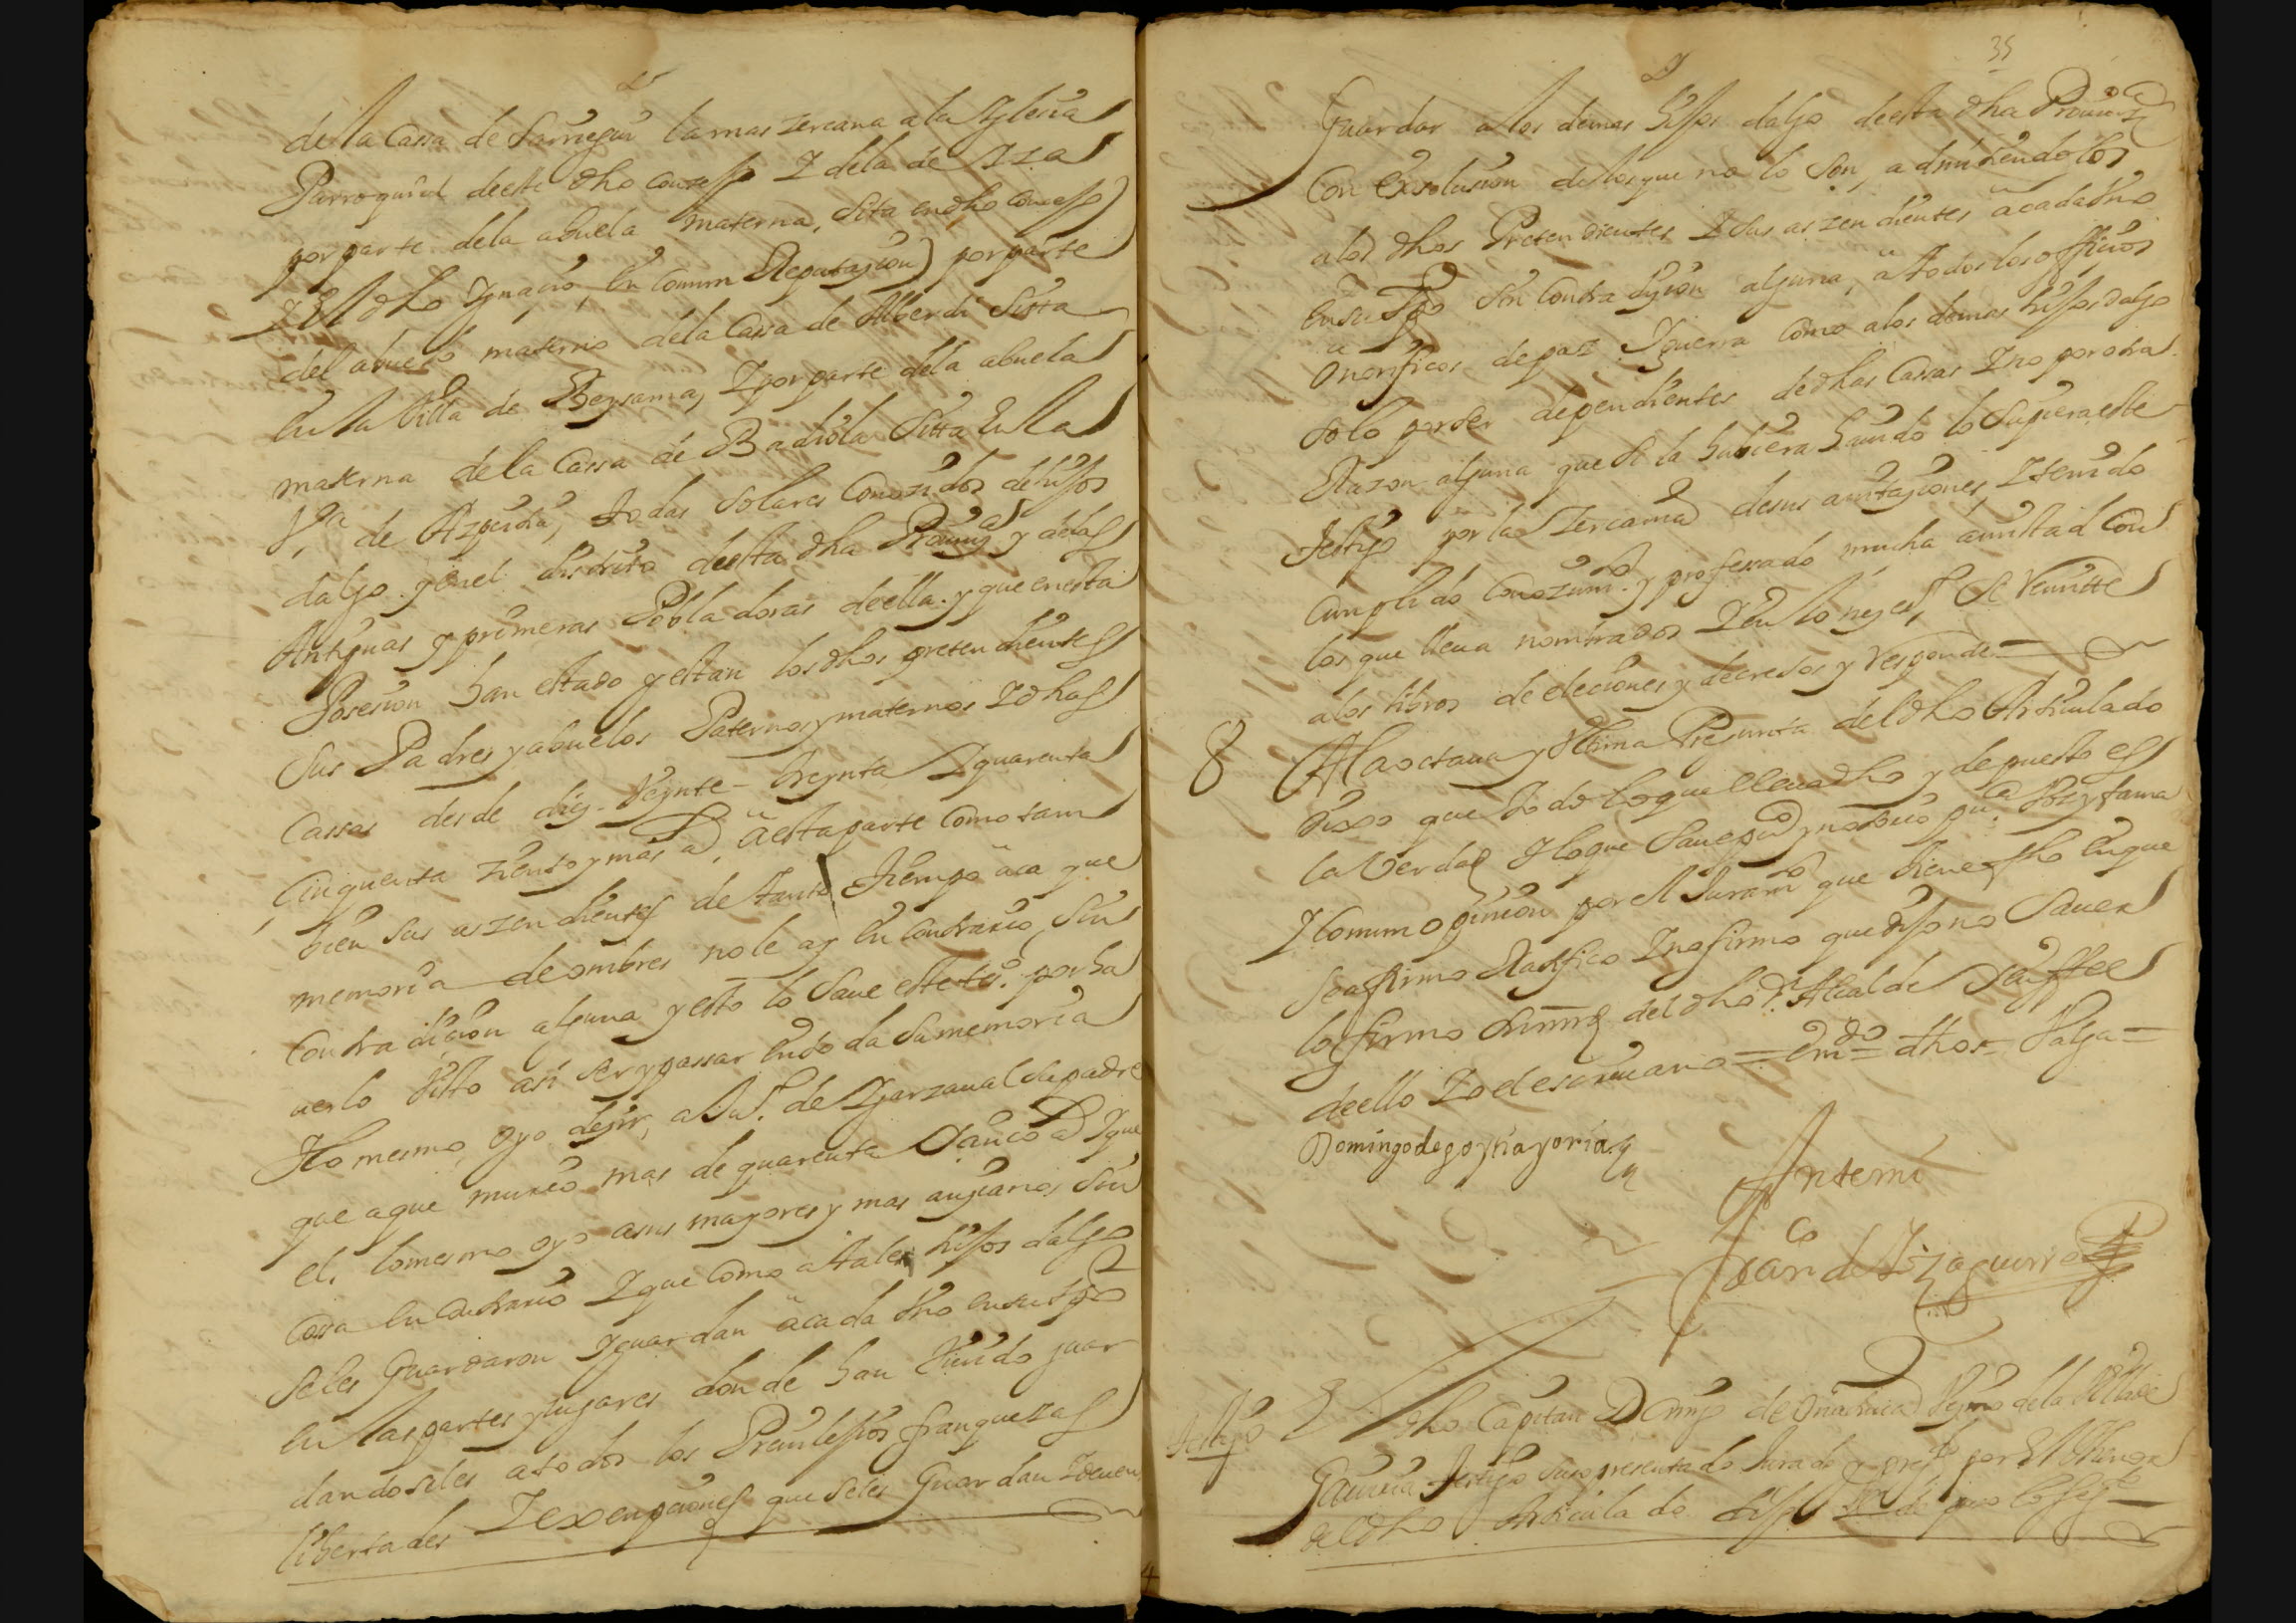 de la Cassa de Sarregui la mas zercana a la Yglesia
Parroquial de este dho conzejo Y de la de Aza
por parte de la abuela materna, sita en dho Concejo
Y El dho Ygnacio, en Comun Reputazion) por parte
del abuelo materno de la Cassa de Alberdi Sitta
En la Villa de Beysama, Y por parte de la abuela
materna de la Cassa de Badiola Sitta En la
Vª de Azpeitia, todas Solares Conozidos de hijos
dalgo y en el distrito de esta dha Prouinzª y de las
Antiguas y primeras Pobladoras de ella. y que en esta
Posesion han estado y estan los dhos pretendientes
Sus Padres y abuelos Paternos y maternos Y dhas
Cassas desde diez - Veynte - treynta Y quarenta
Cinquenta ziento y mas aº, a esta parte Como tam
bien sus aszendientes de tanto tiempo aca que
memoria de ombres no le ay En Contrario, Sin
Contradicion alguna y esto lo Saue este tesº. por ha
uerlo Visto asi ser y passar En toda Su memoria
Y lo mesmo oyo dezir, a de Ygarzaual Su padre
que a que murio mas de quarenta Y Cinco aº Y que
el, lo mesmo oyo a sus mayores y mas anzianos Sin
Cosa En Contrario Y que Como a tales hijos dalgo
Se les Guardaron Y guardan a cada Vno en su tpo
En las partes y lugares donde han Viuido guar
dandoseles a todos los Preuilejios franquezas
libertades Y exenpciones que Se les Guardan Y deuen
35
Guardar a los demas hijos dalgo de esta dha Prouinzª
Con Exsolusion de los que no lo Son, admitiendolos
a los dhos Pretendientes Y Sus aszendientes a cada Vno
En su Tpo Sin Contradizion alguna, a todos los officios
Onorificos de paz Y guerra Como a los demas hijos dalgo
Solo por ser dependientes de dhas Cassas Y no por otra
Razon alguna que Si la hubiera hauido lo Supiera este
testigo por la Zercania de sus auitaziones, Y tenido
Cunplido Conozimtº. y professado mucha amistad Con
los que lleua nombrados Y En lo nezesº Se Remitte
a los libros de eleciones y decretos y responde
8 A la octaua y Vltima Pregunta del dho Articulado
Dixo que todo lo que lleua dho y depuesto es
la Verdad Y lo que Saue puº y notorio puª Voz y fama
Y Comun Opinion por el Juramtº que tiene fho En que
Se afirmo Ratifico Y no firmo que dijo no Sauer
lo firmo del dho Sr Alcalde Y En ffee
de ello Yo el escriuano = Emdº = dhos = Valga =
Domingo de goytia y oria
Antemi
Franco de Yzaguirre
Testigo El dho Capitan Domº de Vezino de la Villa de
Gauiria testigo Suso presentado Jurado y presº por El thenor
del dho Articulado Dijo